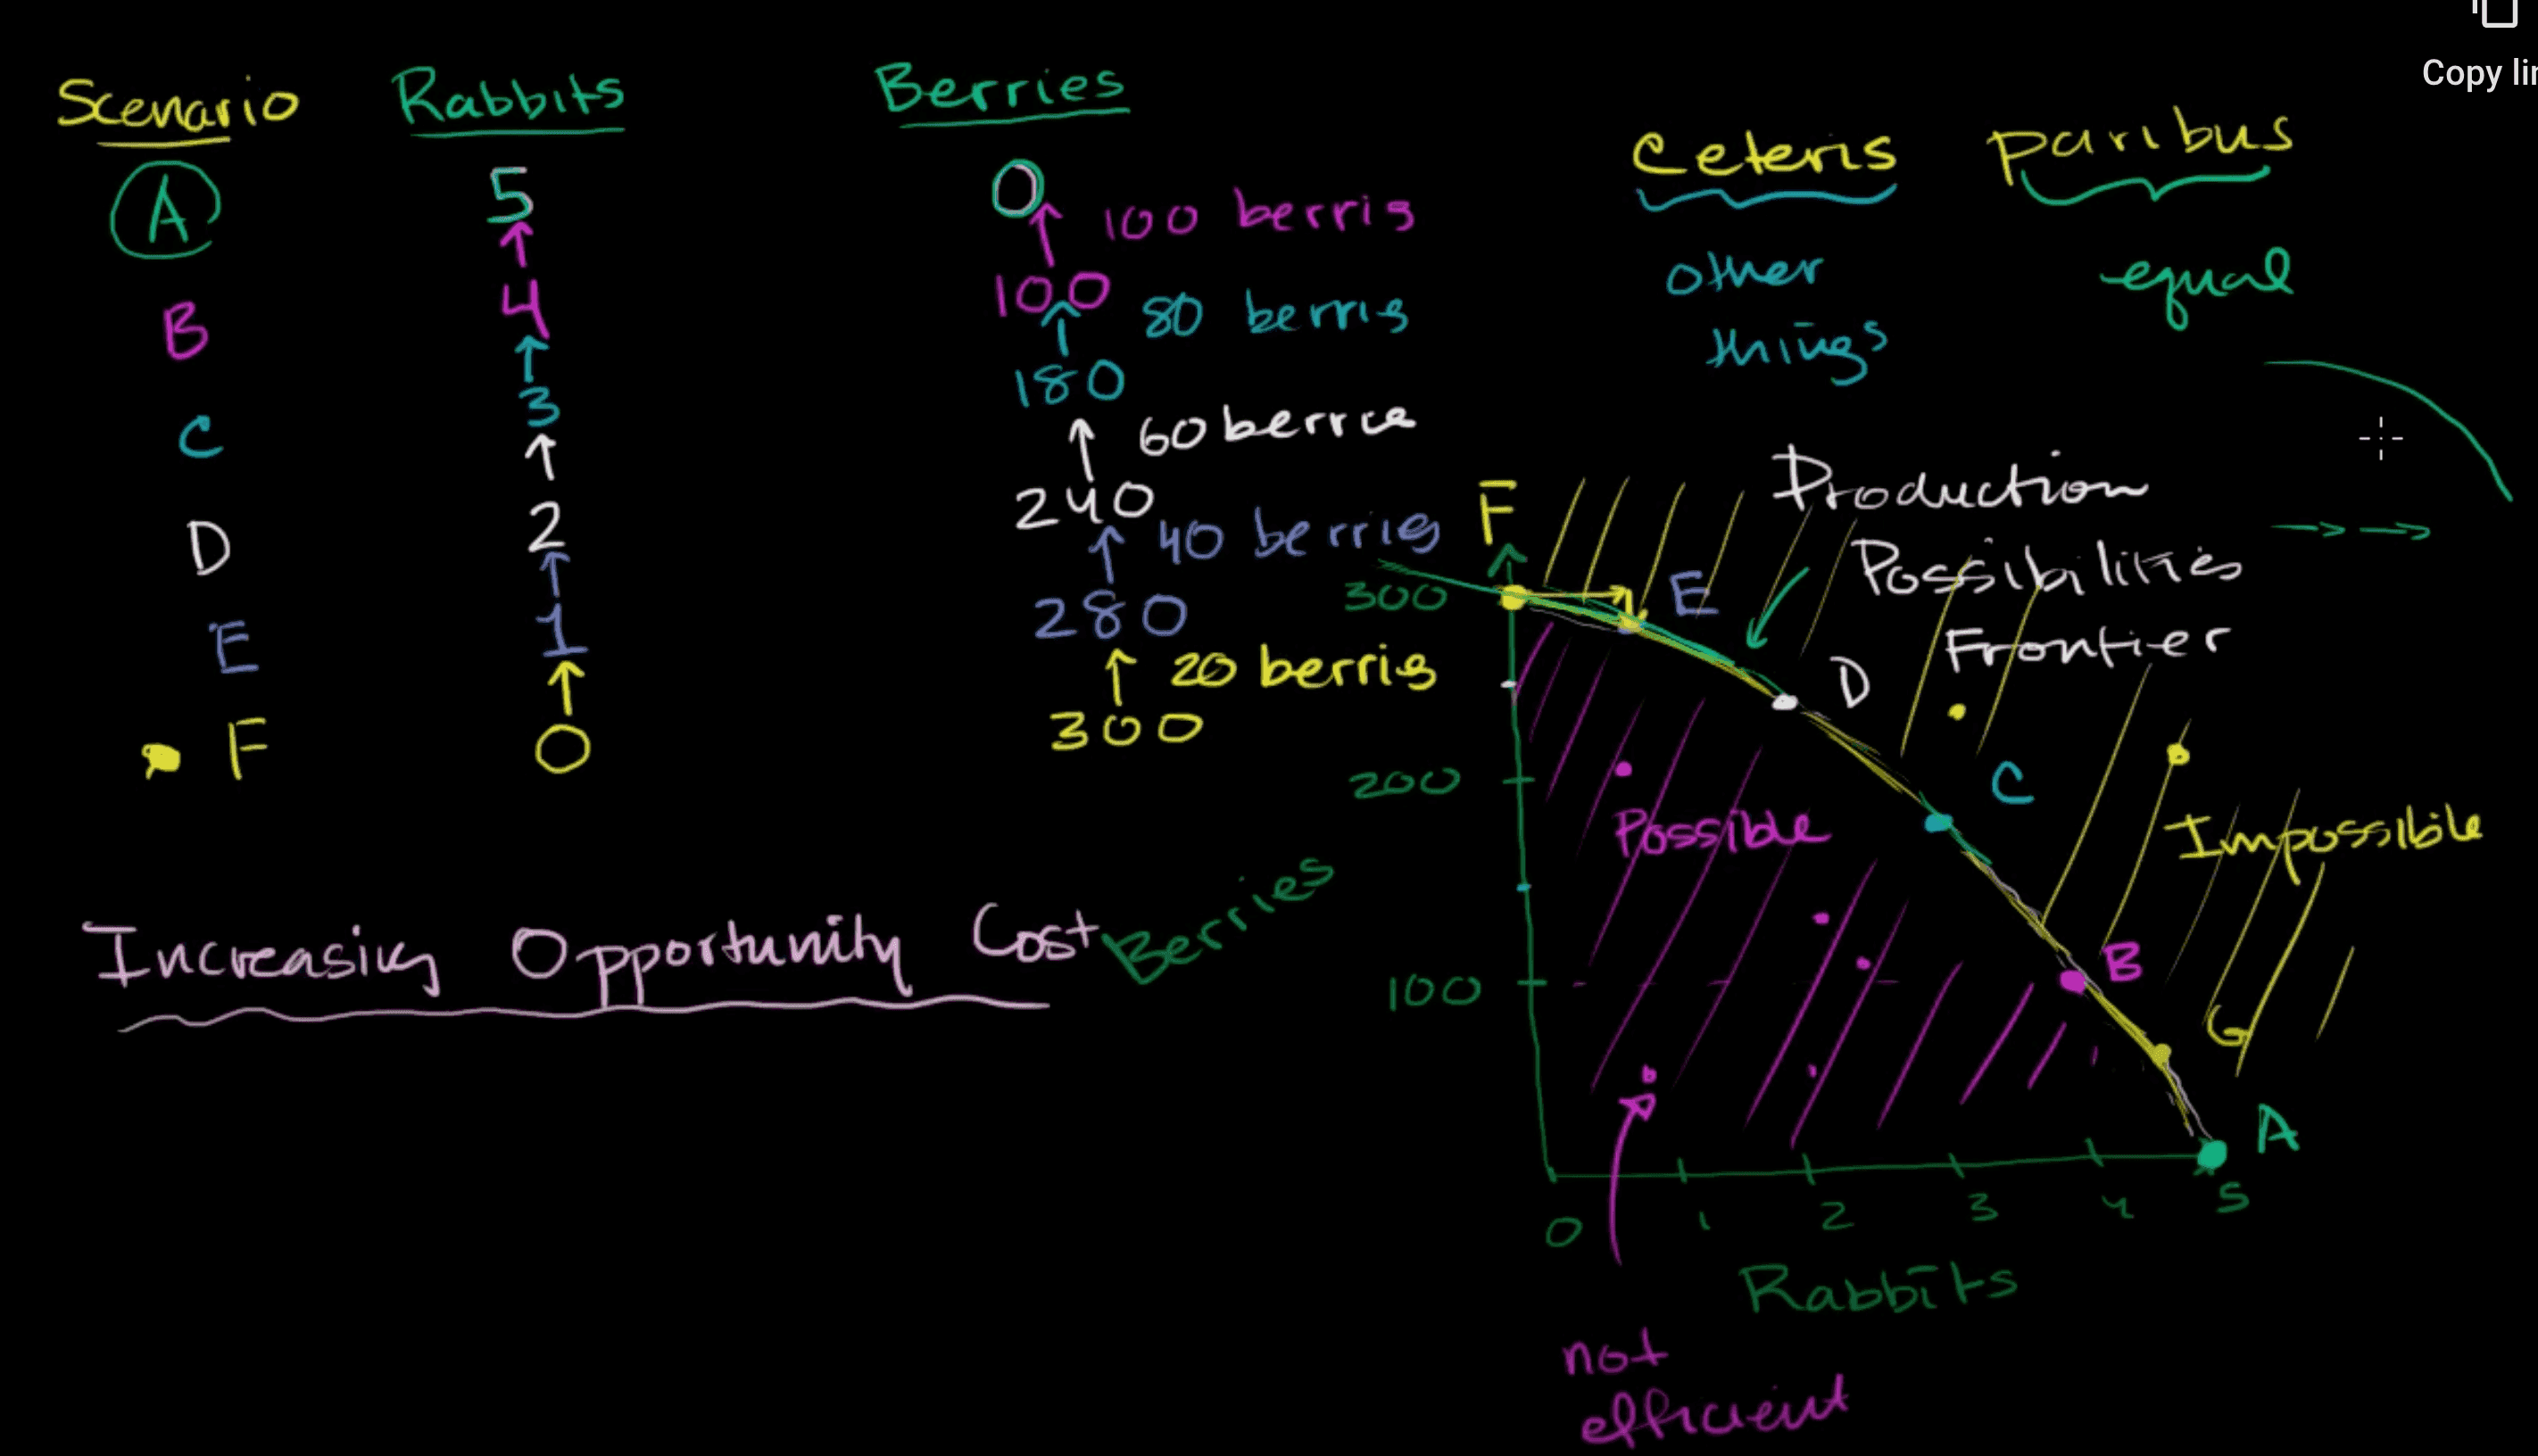 Copy lin
Scenario Rabbits Berries
Ceteris paribus
A 5 0
100 berris
other equal
things
B 4 100
80 berris
C 3 180
60 berrie
D 2 240
40 berries
E 1 280
20 berris
F 0 300
Increasing Opportunity Cost
Production
Possibilities
Frontier
F
E
D
C
B
G
A
300
200
100
Berries
Possible
Impossible
0 1 2 3 4 5
Rabbits
not
efficient